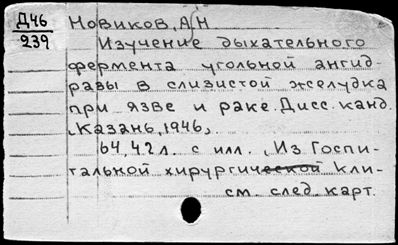 Д46
239
Новиков, А Н
Изучение дыхательного
фермента угольной ангид-
разы в слизистой желудка
при язве и раке. Дисс. канд.
Казань, 1946,
64, 42 л. с илл. , Из Госпи-
тальной хирургической кли-
см. след. карт.